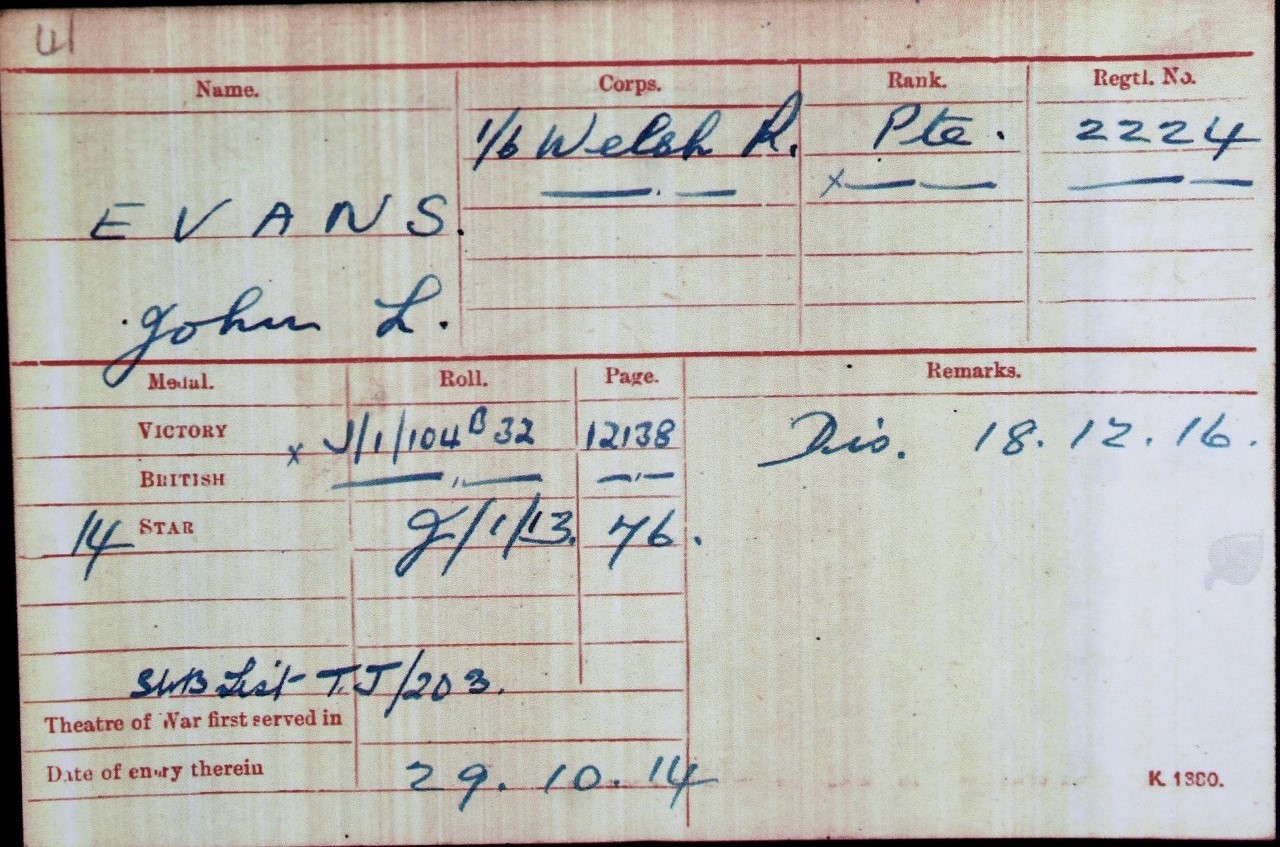 Name. Corps. Rank. Regtl. No.
1/6 Welsh R. Pte. 2224
EVANS.
John L.
Medal. Roll. Page. Remarks.
VICTORY x J/1/104 B 32 12138 Dis. 18.12.16.
BRITISH
14 STAR J/1/13. 76.
SWB List TJ/203.
Theatre of War first served in
Date of entry therein 29.10.14
K. 1380.